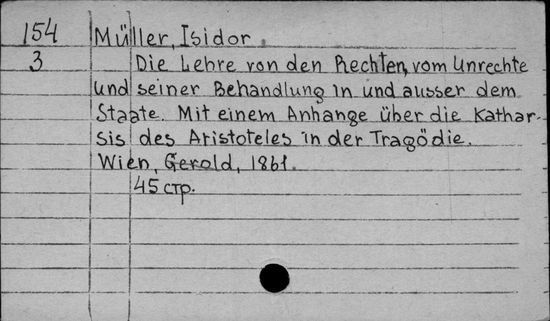 154 Müller, Isidor
3 Die Lehre von den Rechten, vom Unrechte
und seiner Behandlung in und ausser dem
Staate. Mit einem Anhange über die Kathar-
sis des Aristoteles in der Tragödie.
Wien, Gerold, 1861.
45 стр.